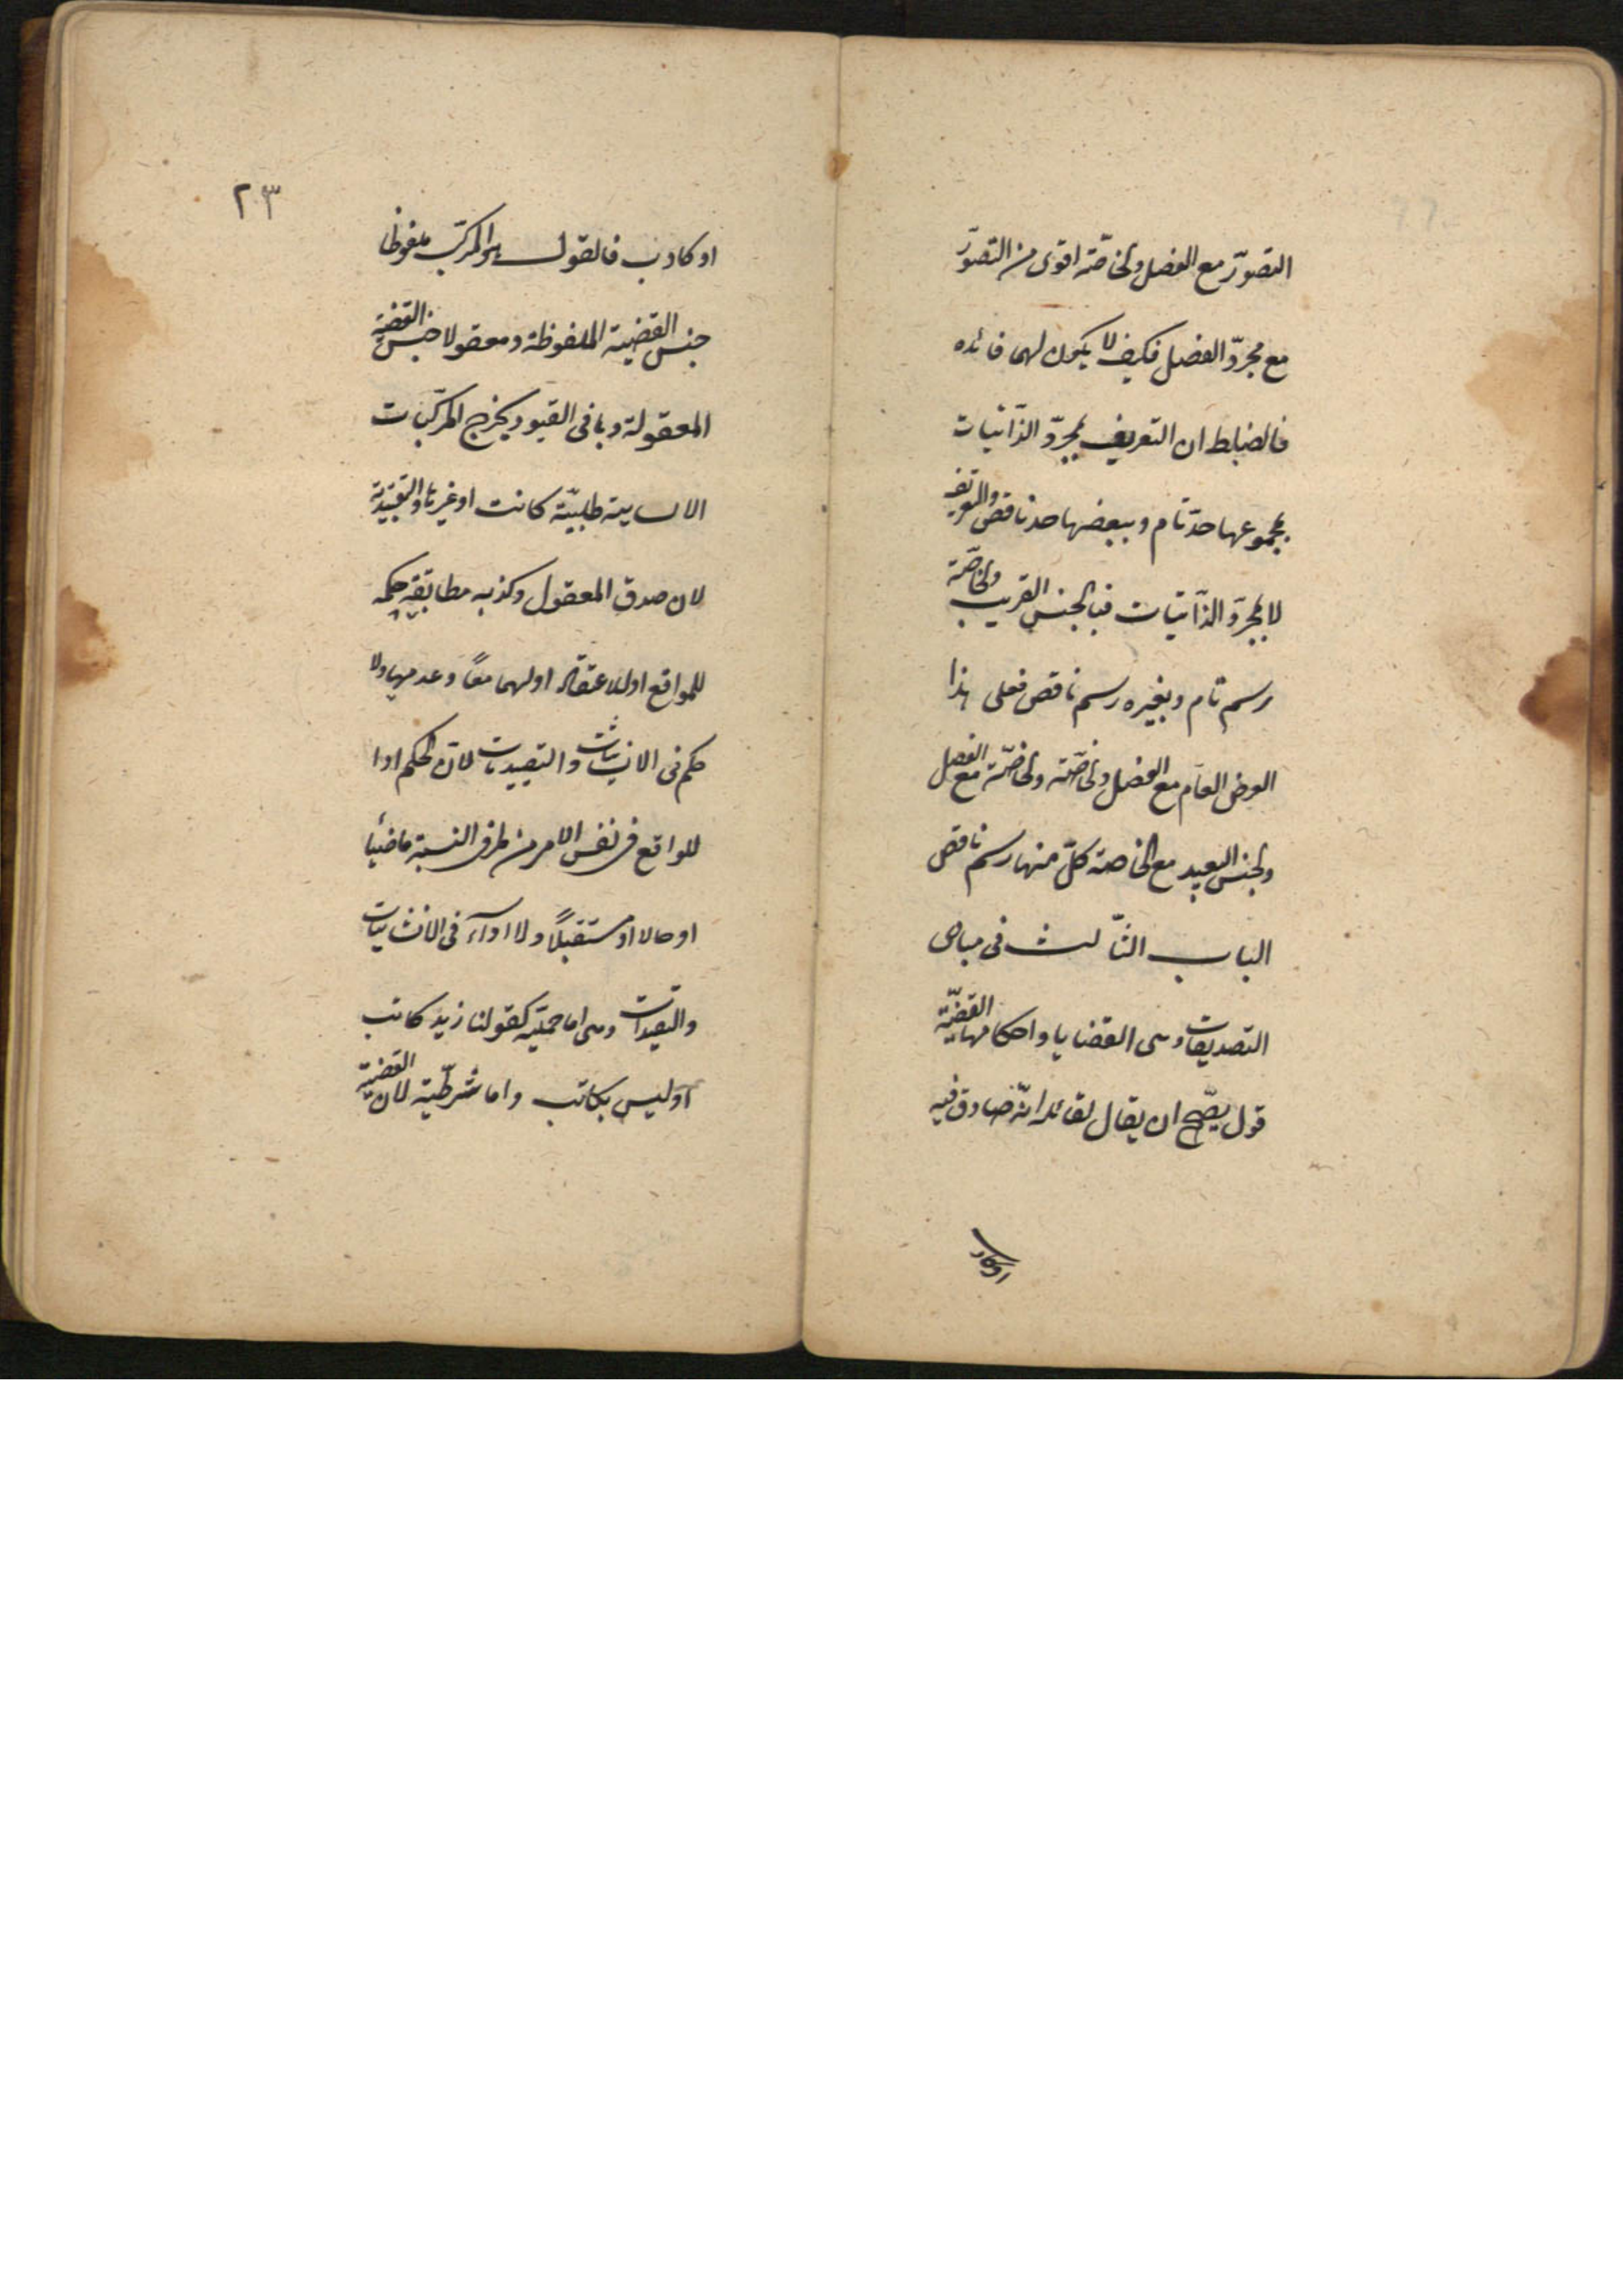 التصوّر مع الفصل والخاصّة اقوى من التصوّر
مع مجرّد الفصل فكيف لا يكون لهما فائده
فالضابط ان التعريف بمجرّد الذّاتيات
بمجموعها حدّ تام وببعضها حد ناقص والتعريف
لا بمجرّد الذّاتيات فبالجنس القريب والخاصّة
رسم تام وبغيره رسم ناقص فعلى هذا
العرض العام مع الفصل والخاصّة والخاصّة مع الفصل
والجنس البعيد مع الخاصة كلّ منها رسم ناقص
الباب الثّالث فى مبادى
التصديقات وهى القضايا واحكامها القضيّة
قول يصّح ان يقال لقائله انّه صادق فيه
اوكاد
٢٣
او كاذب فالقول هو المركّب ملفوظا
جنس القضية الملفوظة ومعقولا جنس القضية
المعقولة وباقى القيود يخرج المركّبات
الانسايية طلبيّة كانت او غيرها والتقييدية
لان صدق المعقول وكذبه مطابقة حكمه
للواقع او للاعتقاد او لهما معًا وعدمها ولا
حكم فى الانشاييات والتقييديات لان الحكم ادا
للواقع فى نفس الامر من طرفى النسبة ماضيًا
او حالا او مستقبلًا ولا اداء فى الانشاييات
والتقييدات وهى اما حمليّة كقولنا زيد كاتب
او ليس بكاتب واما شرطيّة لان القضية